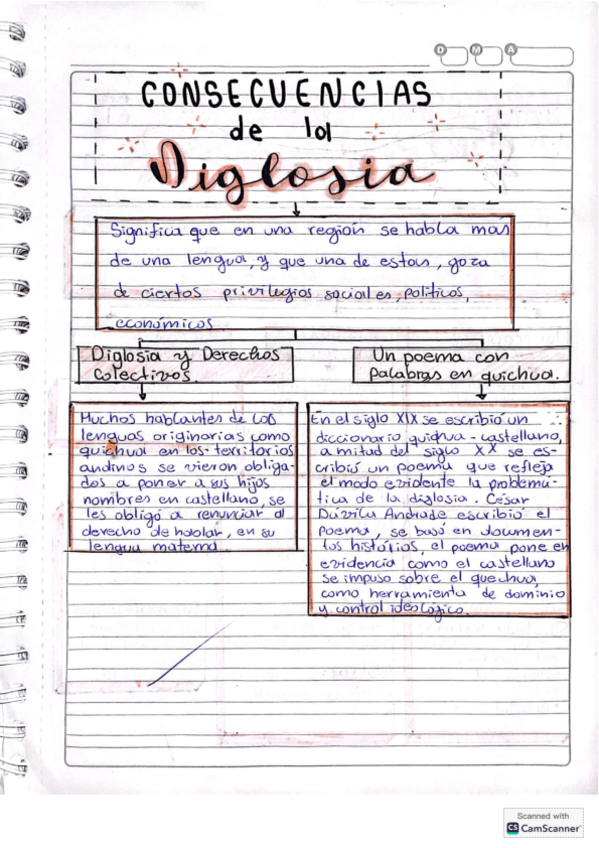 D M A
CONSECUENCIAS
de la
Diglosia
Significa que en una región se habla mas
de una lengua, y que una de estas, goza
de ciertos privilegios sociales, políticos,
económicos
Diglosia y Derechos
Colectivos.
Muchos hablantes de las
lenguas originarias como
quichua en los territorios
andinos se vieron obliga-
dos a poner a sus hijos
nombres en castellano, se
les obligó a renunciar al
derecho de hablar, en su
lengua materna.
Un poema con
palabras en quichua.
En el siglo XIX se escribió un
diccionario quichua - castellano,
a mitad del siglo XX se es-
cribió un poema que refleja
el modo evidente la problemá-
tica de la diglosia. César
Dávila Andrade escribió el
poema, se basó en documen-
tos histórios, el poema pone en
evidencia como el castellano
se impuso sobre el quechua,
como herramienta de dominio
y control ideológico.
Scanned with
CS CamScanner